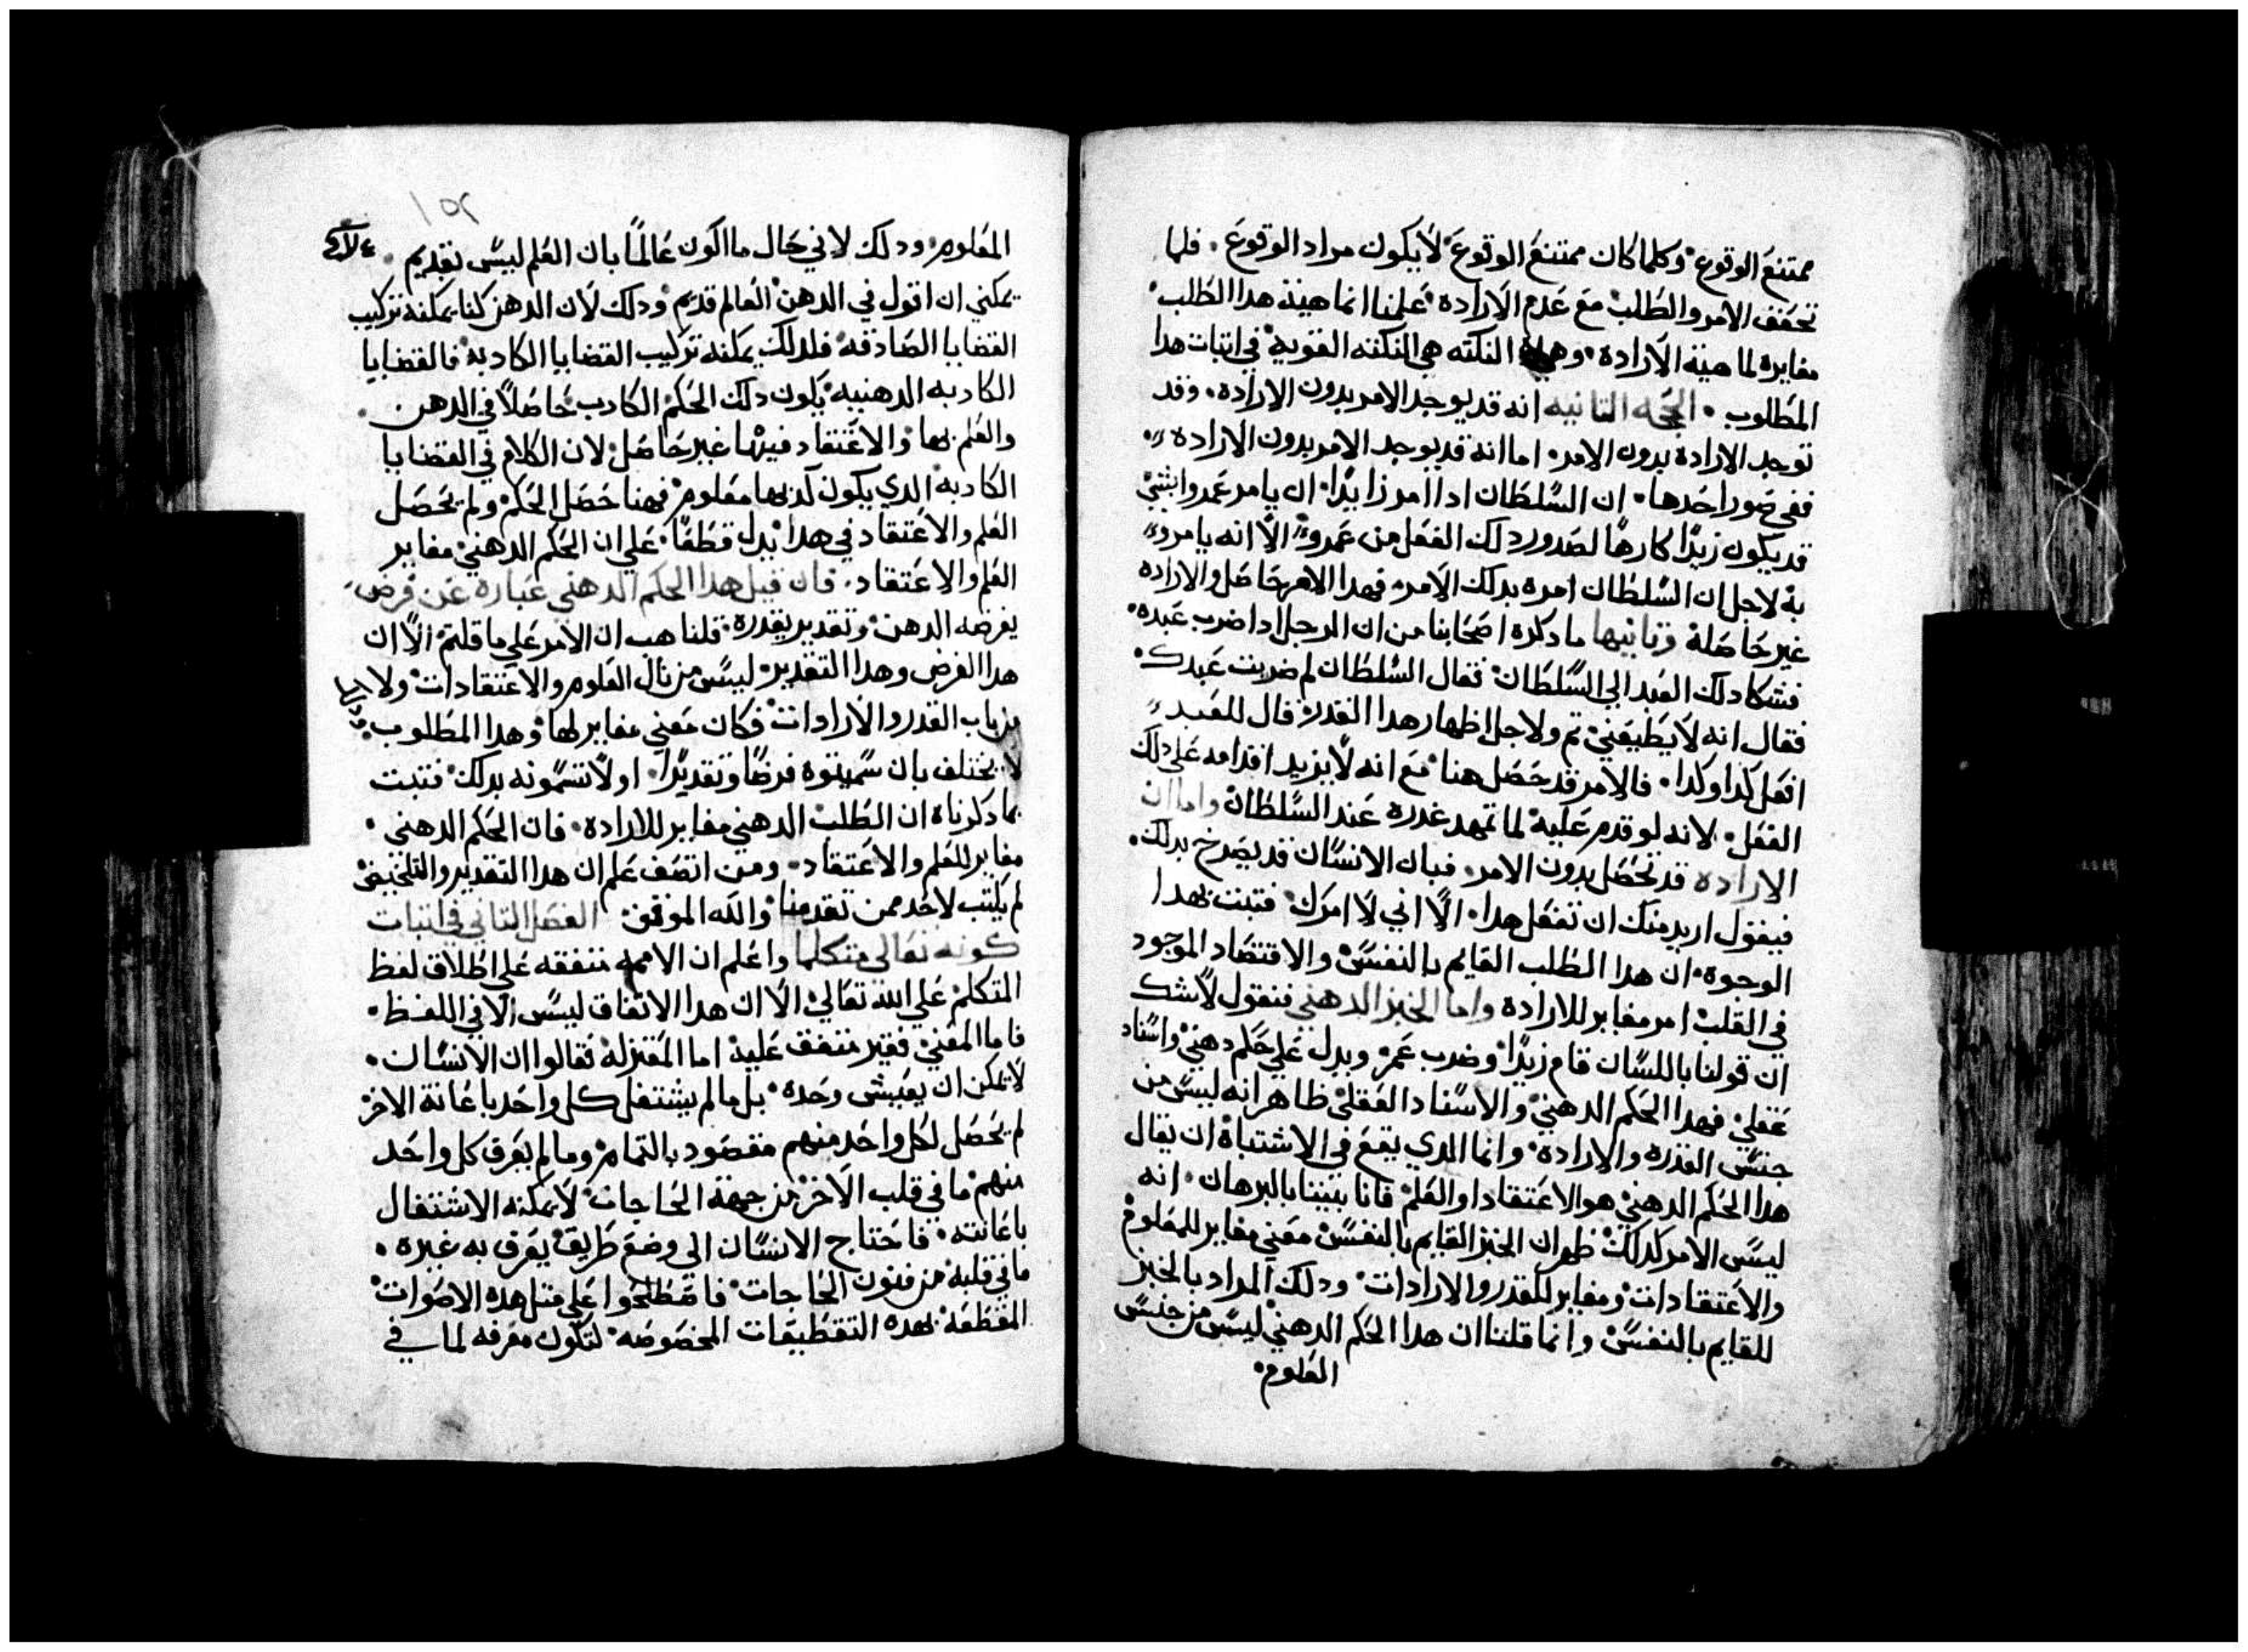 ممتنع الوقوع وكلما كان ممتنع الوقوع لا يكون مراد الوقوع. فلما
تحقف الامر والطلب مع عدم الاراده علمنا انماهية هدا الطلب
مغايره لماهية الارادة. وهي النكته هي النكته القويه في اتبات هدا
المطلوب. الحجه التانيه انه قد يوجد الامر بدون الارادة. وقد
توجد الارادة بدون الامر. اما انه قد يوجد الامر بدون الارادة
ففي صور احدها. ان السلطان ادا امر زايدًا. ان يامر عمروا بشي
قد يكون زيدًا كارهًا لصدور دلك الفعل من عمرو الا انه يامرو
به لاجل ان السلطان امره بدلك الامر فهدا الامر حاصل والاراده
غير حاصلة وتانيها ما دكره اصحابنا من ان الرجل ادا ضرب عبده.
فشكا دلك العبد الى السلطان فقال السلطان لم ضربت عبدك.
فقال انه لا يطيعني تم ولاجل اظهار هدا الغدر قال للعبد
افعل كدا وكدا. فالامر قد حصل هنا مع انه لا يزيد اقدامه علي دلك
الفعل. لانه لو قدم عليه لما تمهد غدره عند السلطان واما ان
الارادة قد تحصل بدون الامر. فبان الانسان قد يصرخ بدلك.
فيقول اريد منك ان تفعل هدا. الا اني لا امرك فتبت بهدا
الوجوه. ان هدا الطلب القايم بالنفس والاقتضاد الموجود
في القلب امر مغاير للارادة واما الخبر الدهني فنقول لا شك
ان قولنا باللسان قام زيدًا وضرب عمر ويدل علي حكم دهني واسناد
عقلي فهدا الحكم الدهني والاسناد العقلي ظاهر انه ليس من
جنس القدره والارادة وانما الدي يقع في الاشتباه ان يقال
هدا الحكم الدهني هو الاعتقاد او العلم فانا بيننا بالبرهان. انه
ليس الامر كدلك ظهر ان الخبر القايم بالنفس معني مغاير للعلوم
والاعتقادات ومغاير للقدر والارادات ودلك المراد بالخبر
للقايم بالنفس وانما قلنا ان هدا الحكم الدهني ليس من جنس
العلوم.
١٥٢
العلوم ودلك لاني حال ما اكون عالمًا بان العلم ليس بقديم.
يمكني ان اقول في الدهن العالم قديم ودلك لان الدهن كما يمكنه تركيب
القضايا الصادقه فلدلك يمكنه تركيب القضايا الكادبه فالقضايا
الكادبه الدهنيه يكون دلك الحكم الكادب حاصلاً في الدهن.
والعلم بها والاعتقاد فيها غير حاصل لان الكلام في القضايا
الكادبه الدي يكون كدبها معلوم فهنا حصل الحكم ولم يحصل
العلم والاعتقاد في هدا يدل قطعًا علي ان الحكم الدهني مغاير
العلم والاعتقاد. فان قيل هدا الحكم الدهني عبارة عن فرض
يفرضه الدهن وتقدير يقدره. قلنا هب ان الامر علي ما قلتم الا ان
هدا الفرض وهدا التقدير ليس من باب العلوم والاعتقادات ولا
من باب القدر والارادات فكان معني مغاير لها وهدا المطلوب.
لا يختلف بان سميتوه فرضًا وتقديرًا. او لا تسمونه بدلك فتبت
بما دكرناه ان الطلب الدهني مغاير للارادة. فان الحكم الدهني.
مغاير للعلم والاعتقاد. ومن اتصف علم ان هدا التقدير والتلخيص
لم يكتب لاحد ممن تقدمنا والله الموفق الفصل التاني في اتبات
كونه تعالى متكلما واعلم ان الامه متفقه علي اطلاق لفظ
المتكلم علي الله تعالي الا ان هدا الاتفاق ليس الا في اللفظ.
فاما المعني فغير متفق عليه اما المعتزلة فقالوا ان الانسان.
لا يمكن ان يعيش وحده. بل ما لم يشتغل كل واحد باعانة الاخر
لم يحصل لكل واحد منهم مقصود بالتمام وما لم يعرف كل واحد
منهم ما في قلب الاخر من جهة الحاجات لا يمكنه الاشتغال
باعانته. فاحتاج الانسان الى وضع طريق يعرف به غيره.
ما في قلبه من فنون الحاجات فاصطلحوا علي متل هده الاصوات
المقطعة بهده التقطيعات المخصوصه لتكون معرفه لما في